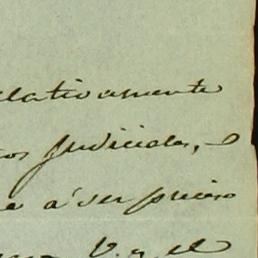 elativamente
os judiciales, o
e á ser preciso
V. y el